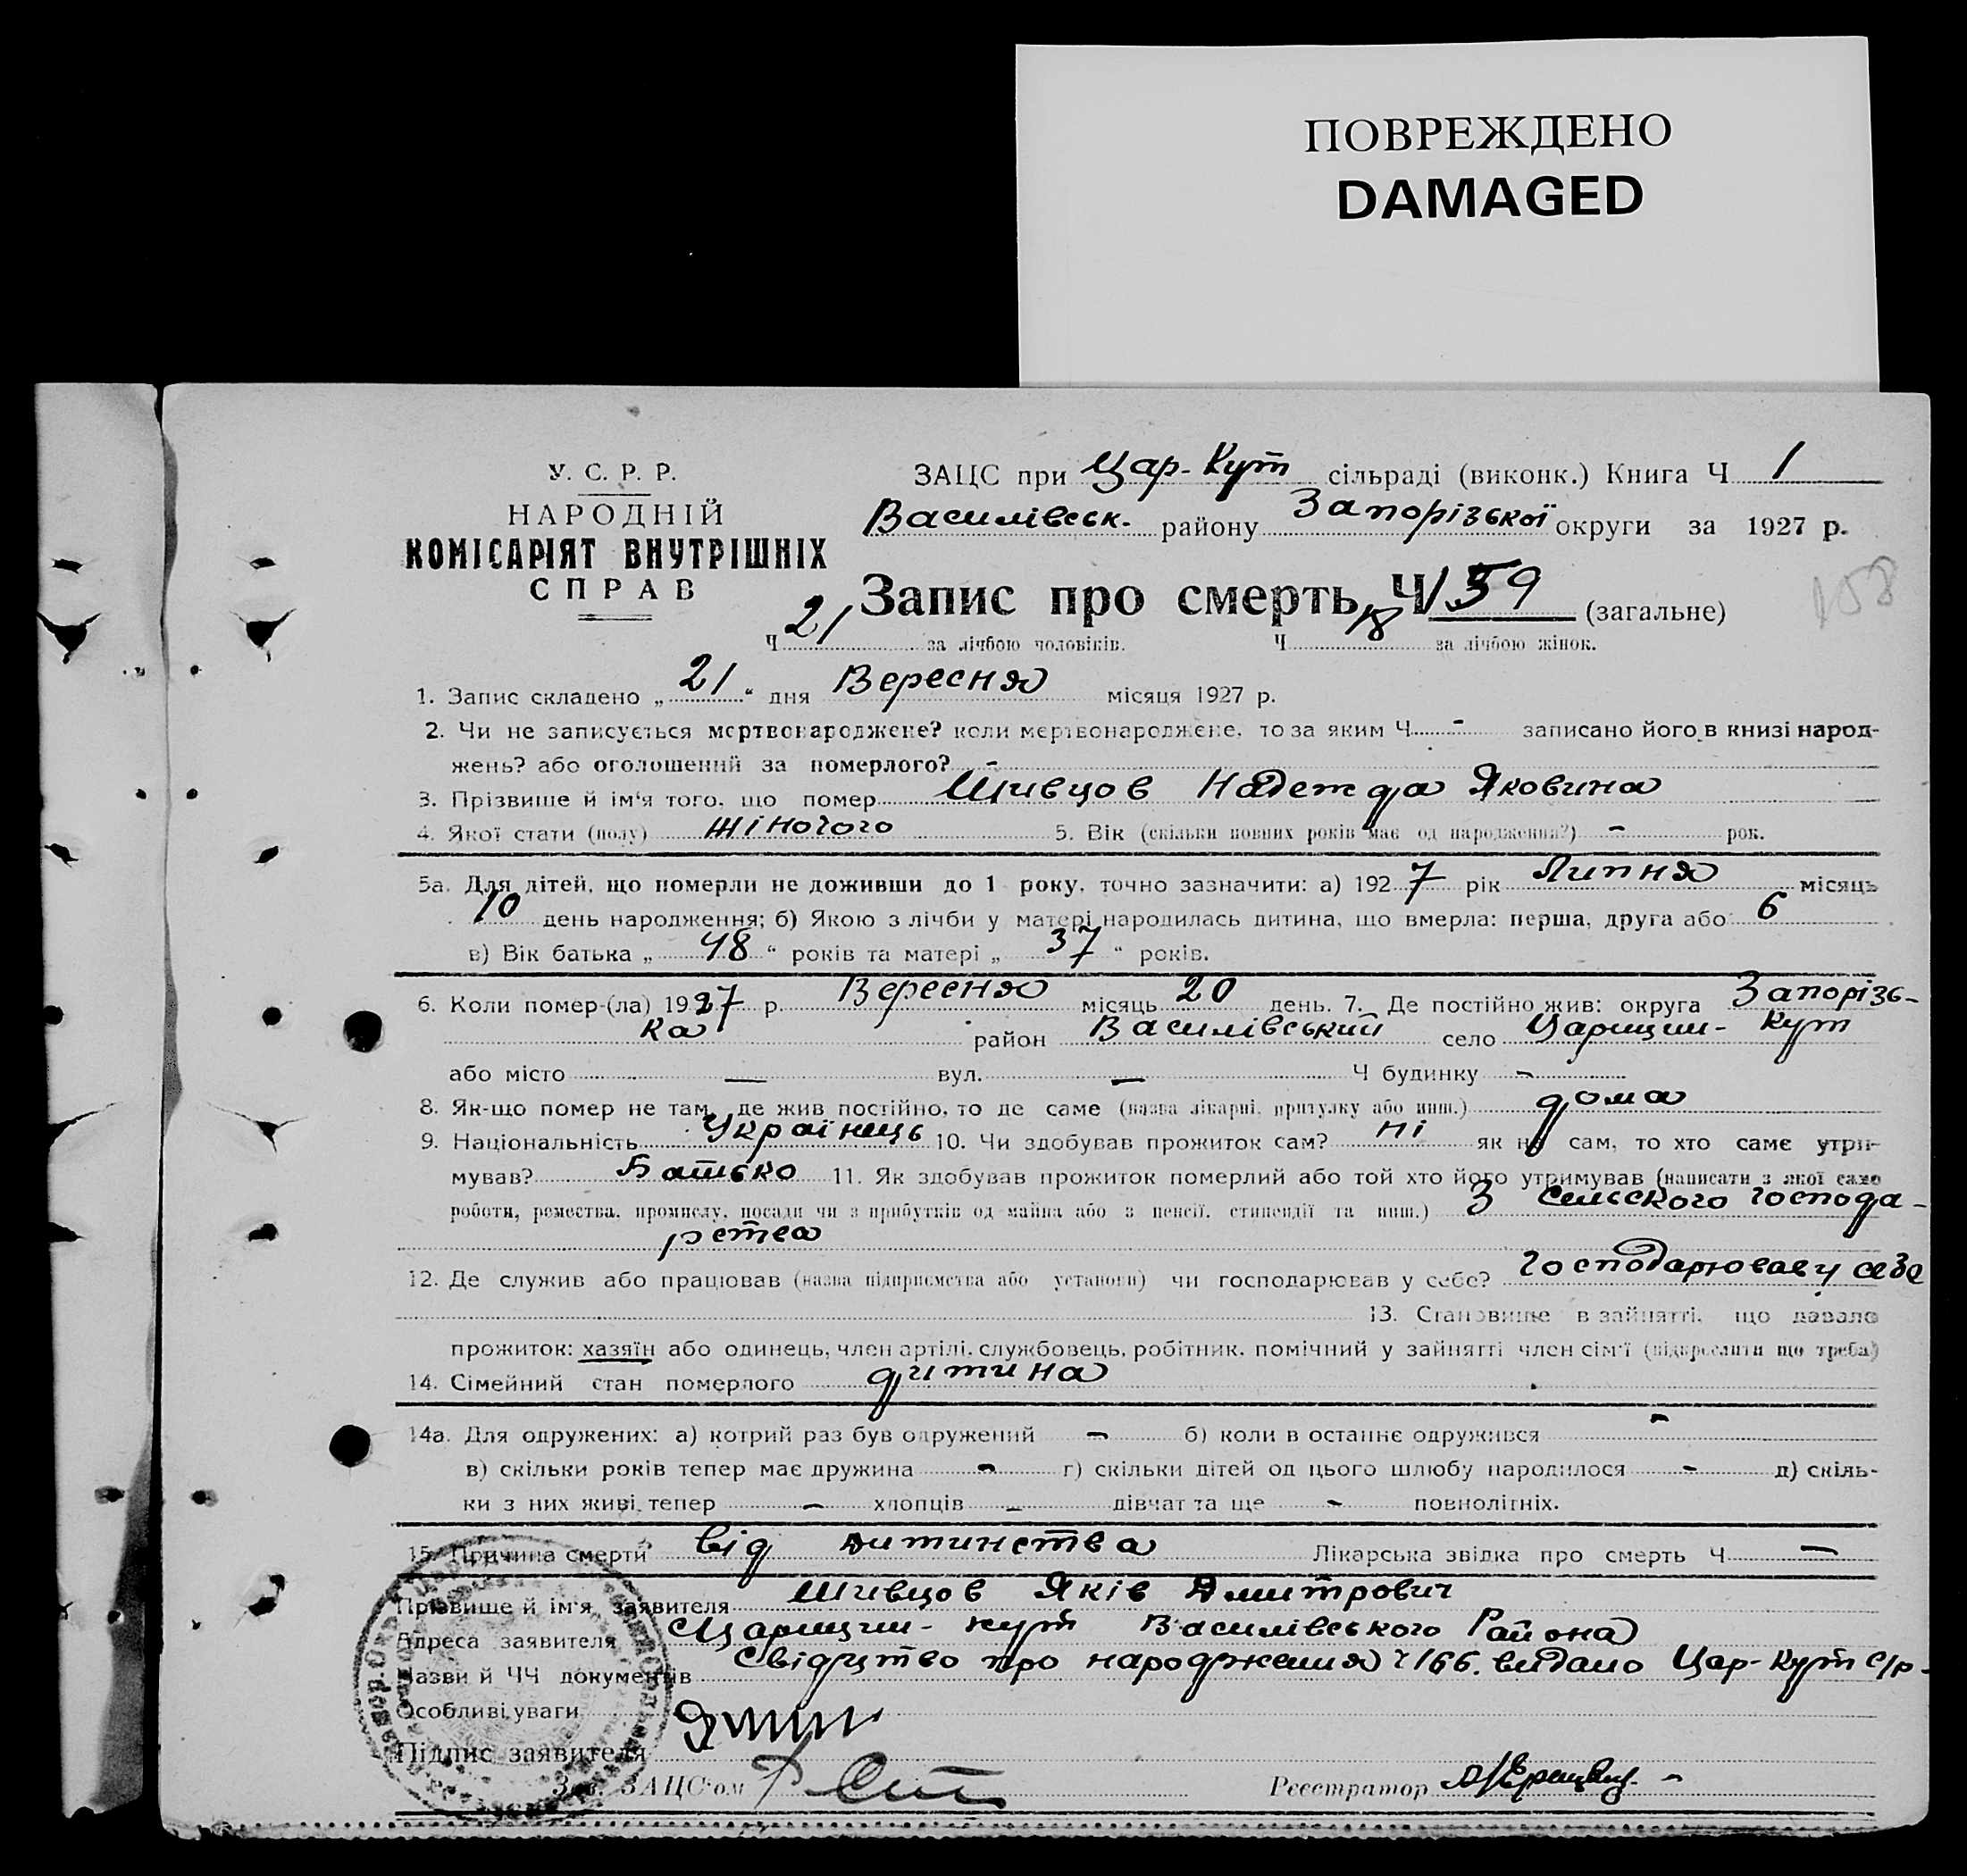 ПОВРЕЖДЕНО
DAMAGED
У. С. Р. Р.
НАРОДНІЙ
КОМІСАРІЯТ ВНУТРІШНІХ
СПРАВ
ЗАЦС при Цар-Кут сільраді (виконк.) Книга Ч 1
Василівськ. району Запорізької округи за 1927 р.
158
Запис про смерть Ч 159 (загальне)
Ч 21 за лічбою чоловіків. Ч 18 за лічбою жінок.
1. Запис складено „ 21 “ дня Вересня місяця 1927 р.
2. Чи не записується мертвонароджене? коли мертвонароджене, то за яким Ч - записано його в книзі народ-
жень? або оголошений за померлого? -
3. Прізвище й ім'я того, що помер Шивцов Надежда Яковина
4. Якої стати (полу) жіночого 5. Вік (скільки повних років має од народження?) - рок.
5а. Для дітей, що померли не доживши до 1 року, точно зазначити: а) 1927 рік Липня місяць
10 день народження; б) Якою з лічби у матері народилась дитина, що вмерла: перша, друга або 6
в) Вік батька „ 48 “ років та матері „ 37 “ років.
6. Коли помер-(ла) 1927 р. Вересня місяць 20 день. 7. Де постійно жив: округа Запорізь-
ка район Василівський село Царицин-Кут
або місто — вул. — Ч будинку -
8. Як-що помер не там, де жив постійно, то де саме (назва лікарні, притулку або инш.) дома
9. Національність Українець 10. Чи здобував прожиток сам? ні як не сам, то хто саме утри-
мував? Батько 11. Як здобував прожиток померлий або той хто його утримував (написати з якої само
роботи, ремества, промислу, посади чи з прибутків од майна або з пенсії, стипендії та инш.) З сельского господа-
рства
12. Де служив або працював (назва підприємства або установи) чи господарював у себе? Господарював у себе
13. Становище в зайнятті, що давало
прожиток: хазяїн або одинець, член артілі, службовець, робітник, помічний у зайнятті член сім'ї (підкреслити що треба)
14. Сімейний стан померлого дитина
14а. Для одружених: а) котрий раз був одружений - б) коли в останнє одружився -
в) скільки років тепер має дружина - г) скільки дітей од цього шлюбу народилося - д) скіль-
ки з них живі тепер - хлопців - дівчат та ще - повнолітніх.
15. Причина смерти від дитинства Лікарська звідка про смерть Ч —
Прізвище й ім'я заявителя Шивцов Яків Дмитрович
Адреса заявителя Царицин-кут Василівського Района
Назви й ЧЧ документів Свідутво про народження Ч 166. видано Цар-Кут с/р.
Особливі уваги
Підпис заявителя
Зав. ЗАЦС'ом Реєстратор